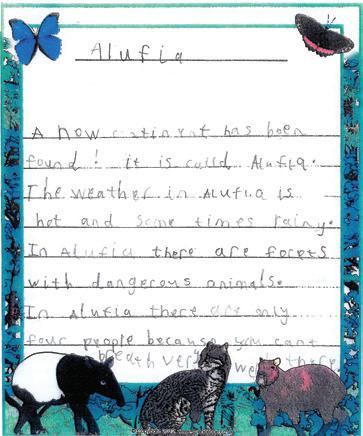 Alufia
A now continent has been
found! it is calld Alufia.
The weather in Alufia is
hot and some times rainy.
In Alufia there are forets
with dangerous animals.
In Alufia there are only
four people because you cant
breath very well there